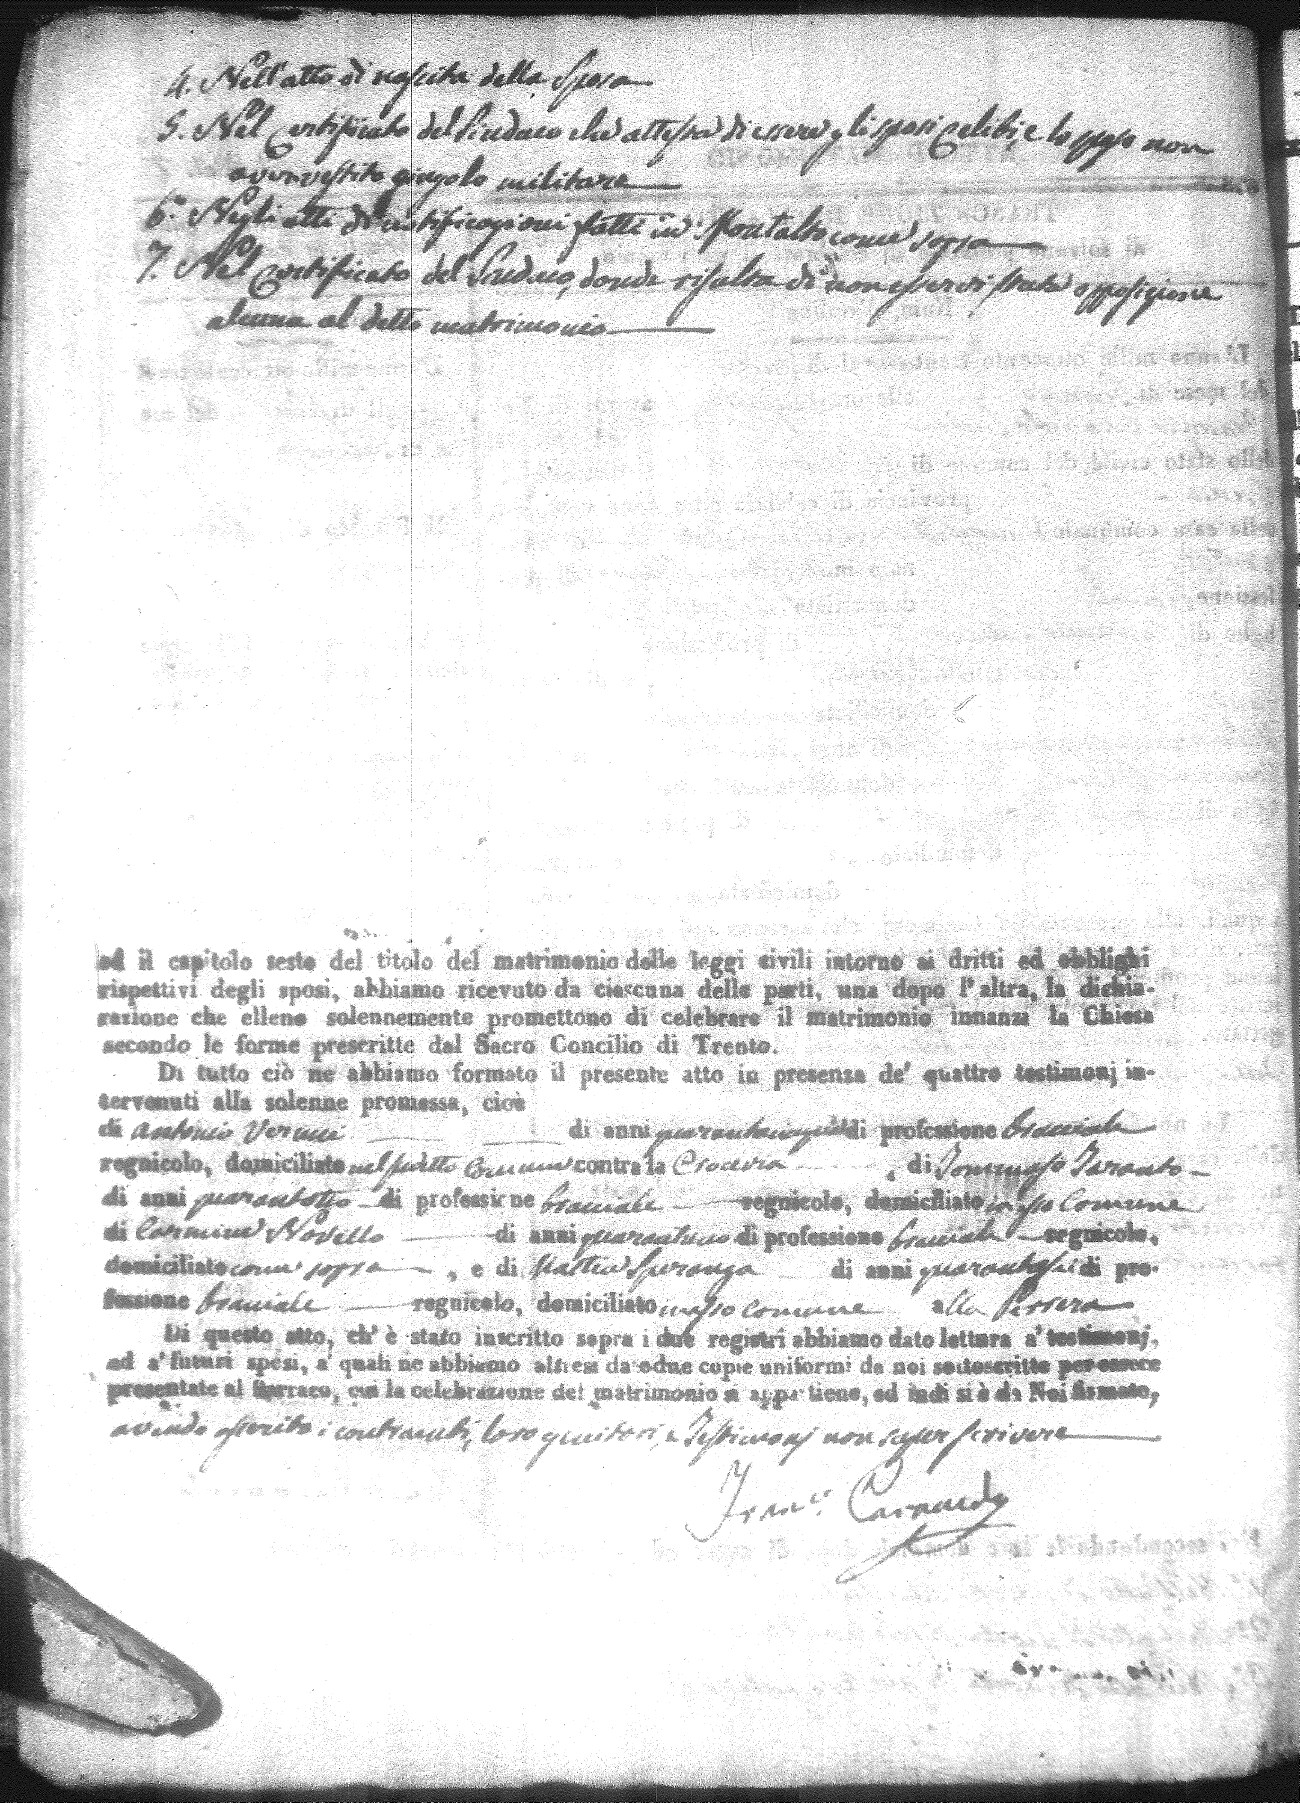 4. Nell'atto di nascita della Sposa
5. Nel Certificato del Sindaco che attesta di essere gli sposi celibi, e lo sposo non
aver vestito cingolo militare
6.° Negli atti di notificazioni fatte in Montalto come sopra
7. Nel Certificato del Sindaco, donde risulta di non esservi stata opposizione
alcuna al detto matrimonio
ed il capitolo sesto del titolo del matrimonio delle leggi civili intorno ai dritti ed obblighi
rispettivi degli sposi, abbiamo ricevuto da ciascuna delle parti, una dopo l'altra, la dichia-
razione che elleno solennemente promettono di celebrare il matrimonio innanzi la Chiesa
secondo le forme prescritte dal Sacro Concilio di Trento.
Di tutto ciò ne abbiamo formato il presente atto in presenza de' quattro testimonj in-
tervenuti alla solenne promessa, cioè
di Antonio di anni quarantacinque di professione bracciale
regnicolo, domiciliato nel suddetto Comune contrada Crocevia, di Tommaso Taranto
di anni quarantotto di professione bracciale regnicolo, domiciliato in esso Comune
di Carmine Novello di anni quarantuno di professione bracciale regnicolo,
domiciliato come sopra, e di Matteo Speranza di anni quarantasei di pro-
fessione bracciale regnicolo, domiciliato in esso Comune alla
Di questo atto, ch'è stato inscritto sopra i due registri abbiamo dato lettura a' testimonj,
ed a' futuri sposi, a' quali ne abbiamo altresì dato due copie uniformi da noi sottoscritte per essere
presentate al Parroco, cui la celebrazione del matrimonio si appartiene, ed indi si è da Noi firmato,
avendo asserito i contraenti, loro genitori, e Testimonj non saper scrivere